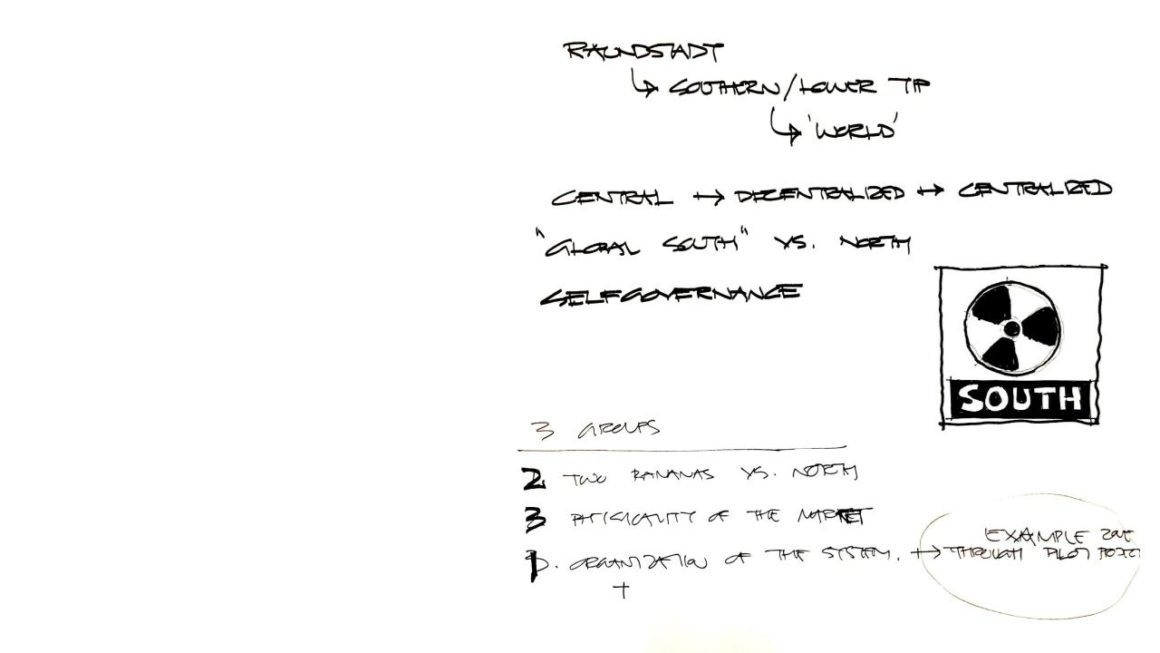 RAUNDSTADT
↳ SOUTHERN/LOWER TIP
↳ 'WORLD'
CENTRAL ↦ DECENTRALIZED ↦ CENTRALIZED
"GLOBAL SOUTH" VS. NORTH
SELFGOVERNANCE
SOUTH
3 GROUPS
2 TWO BANANAS VS. NORTH
3 PHYSICALITY OF THE MARKET
EXAMPLE
1. ORGANIZATION OF THE SYSTEM. ↦ THROUGH PILOT
+